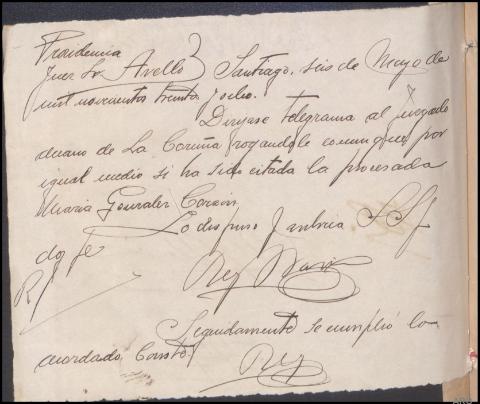 Providencia
Juez Sr. Avelló } Santiago, seis de Mayo de
mil novecientos treinta y ocho.
Dirijase telegrama al juzgado
decano de La Coruña rogandole comunique por
igual medio si ha sido citada la procesada
Maria Gonzalez
Lo dispuso y rubrica S.Sª
doy fe
R/
Rey
Seguidamente se cumplió lo
acordado. Consta.
Rey